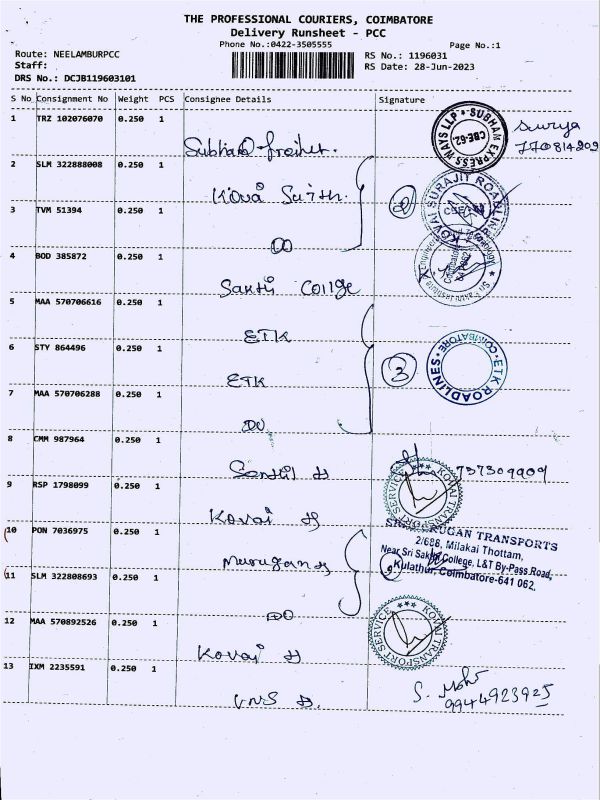 THE PROFESSIONAL COURIERS, COIMBATORE
Delivery Runsheet - PCC
Phone No.:0422-3505555
Page No.:1
Route: NEELAMBURPCC
RS No.: 1196031
Staff:
RS Date: 28-Jun-2023
DRS No.: DCJB119603101
S No Consignment No Weight PCS Consignee Details Signature
1 TRZ 102076070 0.250 1
SUBHAM EXPRESS WAYS LLP CBE-62
Surya
Subham
2 SLM 322888008 0.250 1
Kovai
2
KOVAI SURAJIT ROADLINE
3 TVM 51394 0.250 1
DO
4 BOD 385872 0.250 1
Sakthi College
5 MAA 570706616 0.250 1
ETK
6 STY 864496 0.250 1
ETK
3
ETK ROADLINES COIMBATORE
7 MAA 570706288 0.250 1
DO
8 CMM 987964 0.250 1
9 RSP 1798099 0.250 1
Kovai
KOVAI TRANSPORT SERVICE
10 PON 7036975 0.250 1
Murugan
MURUGAN TRANSPORTS
2/688, Milakai Thottam,
Near Sri Sakthi College, L&T By-Pass Road,
Kulathur, Coimbatore-641 062.
11 SLM 322808693 0.250 1
DO
12 MAA 570892526 0.250 1
Kovai
KOVAI TRANSPORT SERVICE
13 IXM 2235591 0.250 1
VNS
S. Mohr
9944923925